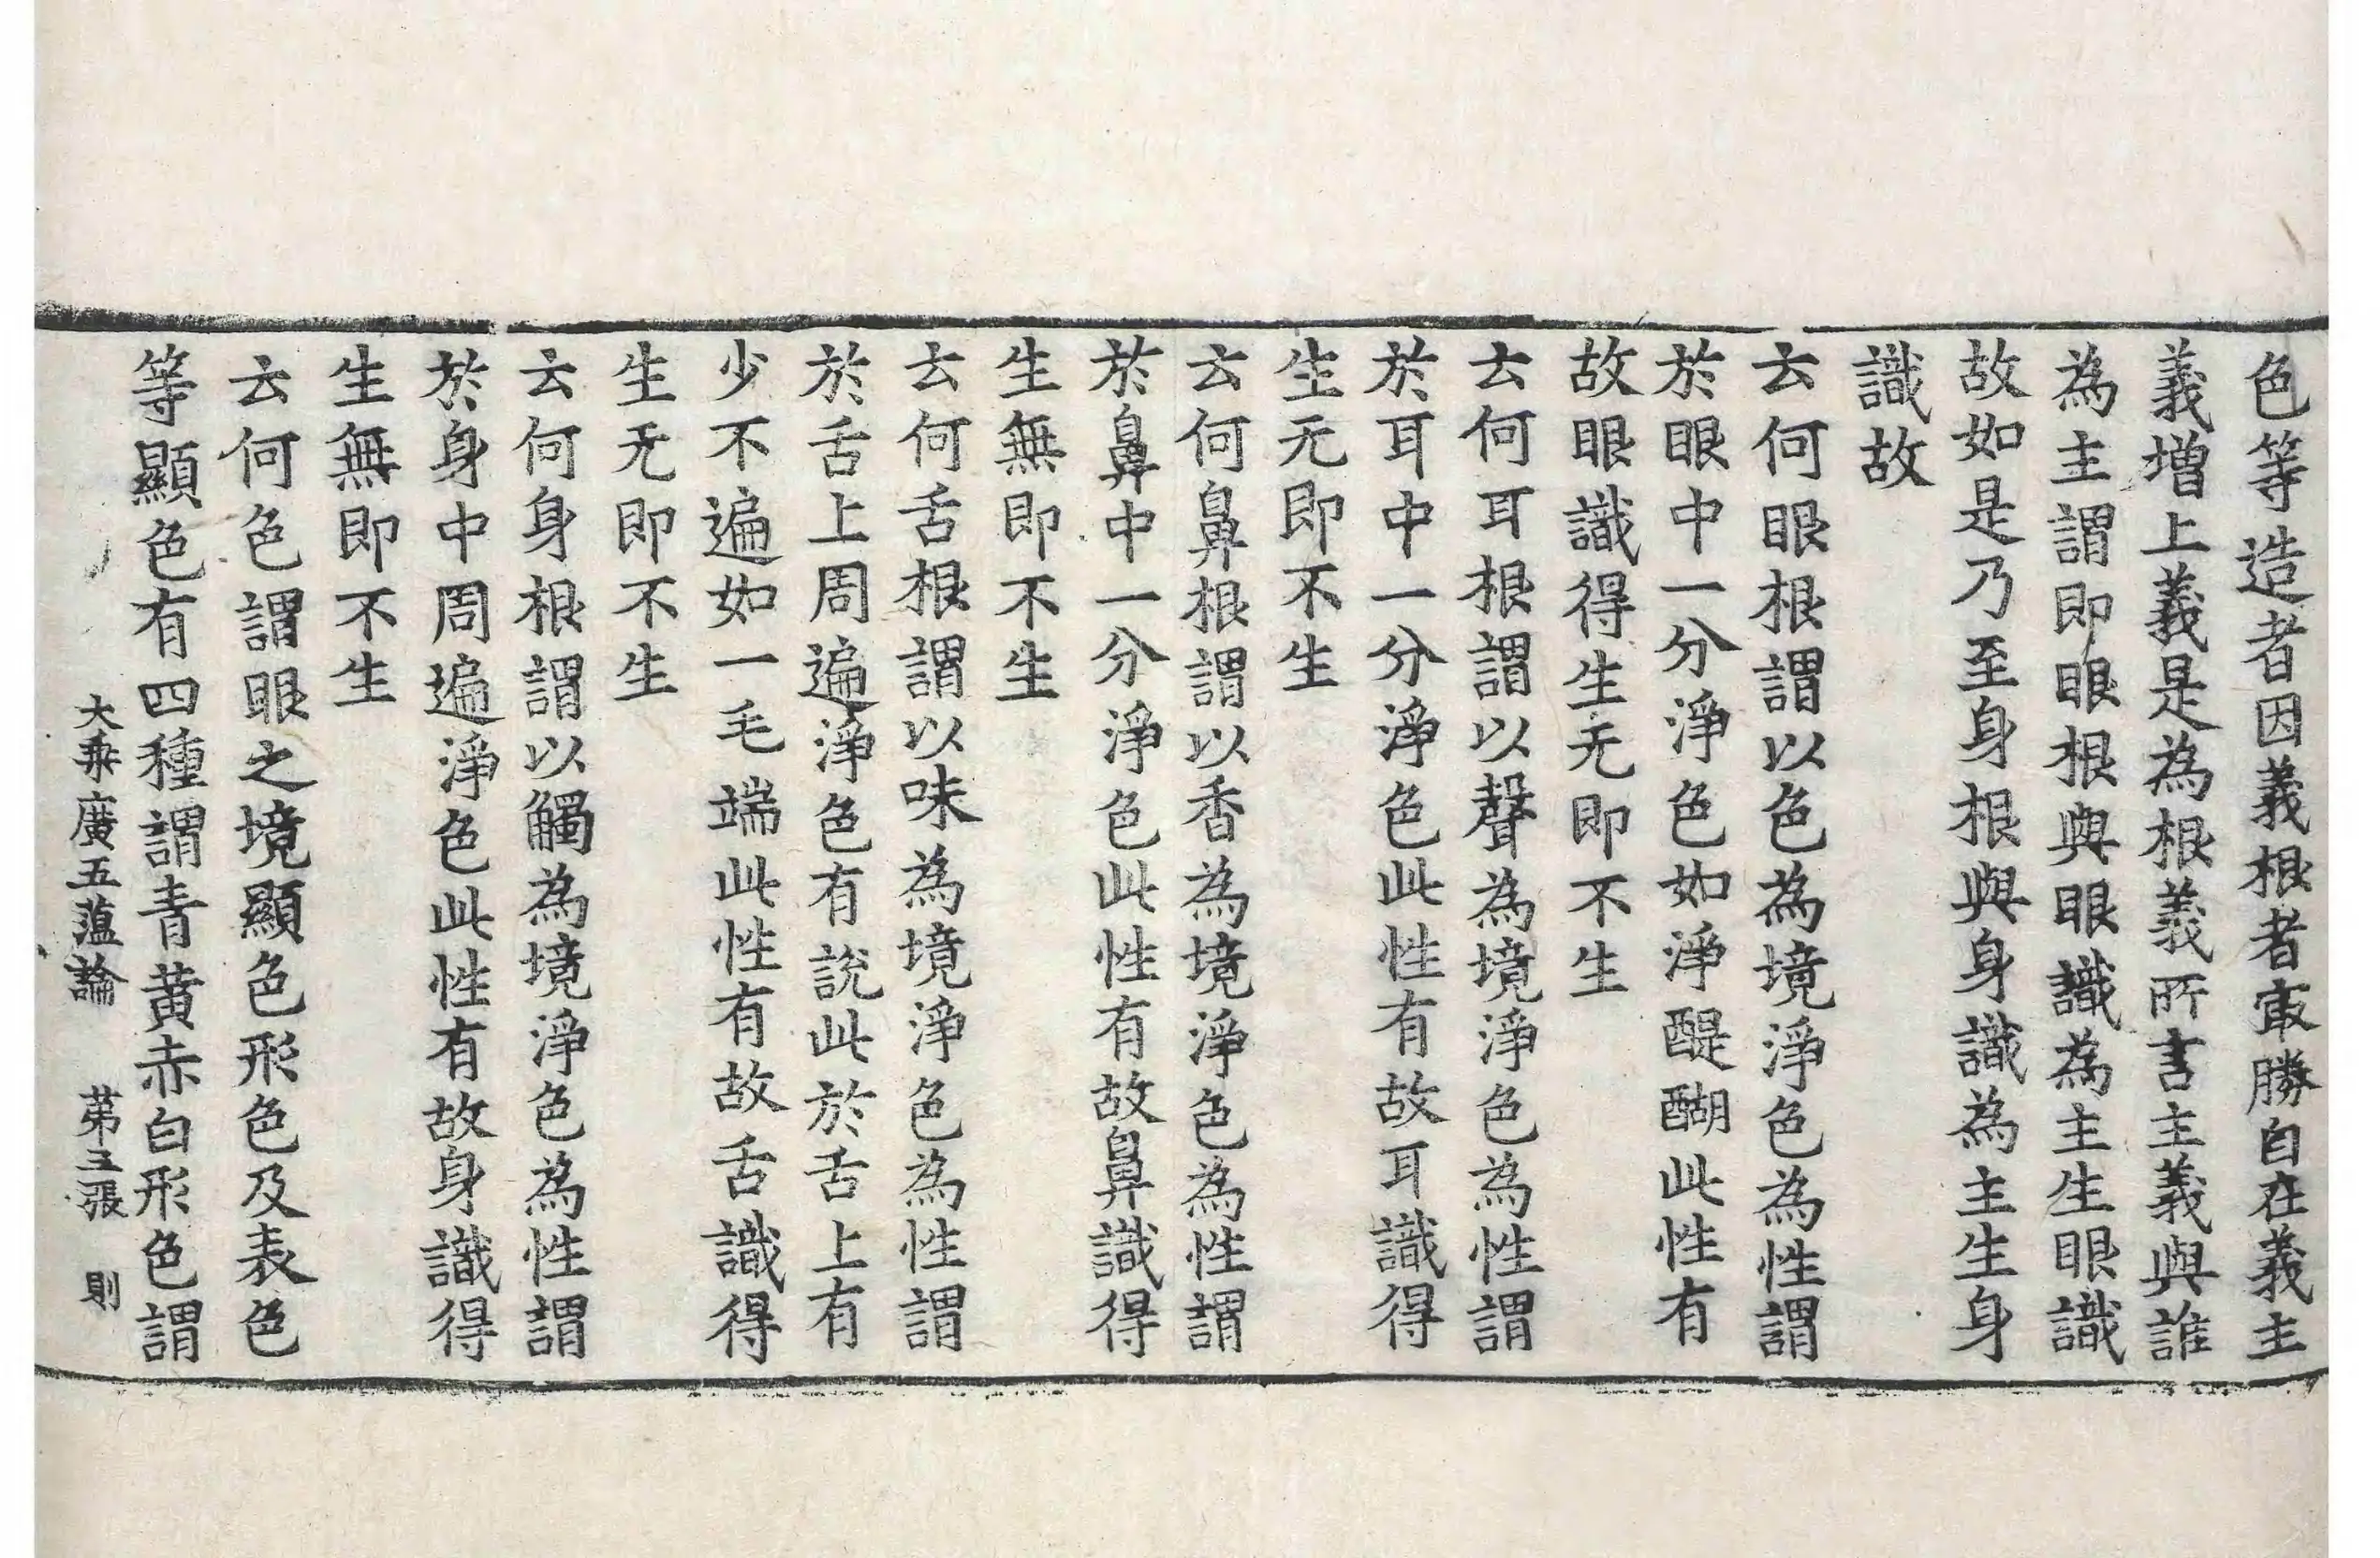 色等造者因義根者㝡勝自在義主
義増上義是為根義所言主義與誰
為主謂即眼根與眼識為主生眼識
故如是乃至身根與身識為主生身
識故
云何眼根謂以色為境淨色為性謂
於眼中一分淨色如淨醍醐此性有
故眼識得生无即不生
云何耳根謂以聲為境淨色為性謂
於耳中一分淨色此性有故耳識得
生无即不生
云何鼻根謂以香為境淨色為性謂
於鼻中一分淨色此性有故鼻識得
生無即不生
云何舌根謂以味為境淨色為性謂
於舌上周遍淨色有說此於舌上有
少不遍如一毛端此性有故舌識得
生无即不生
云何身根謂以觸為境淨色為性謂
於身中周遍淨色此性有故身識得
生無即不生
云何色謂眼之境顯色形色及表色
等顯色有四種謂青黄赤白形色謂
大乘廣五蕰論 苐三張 則